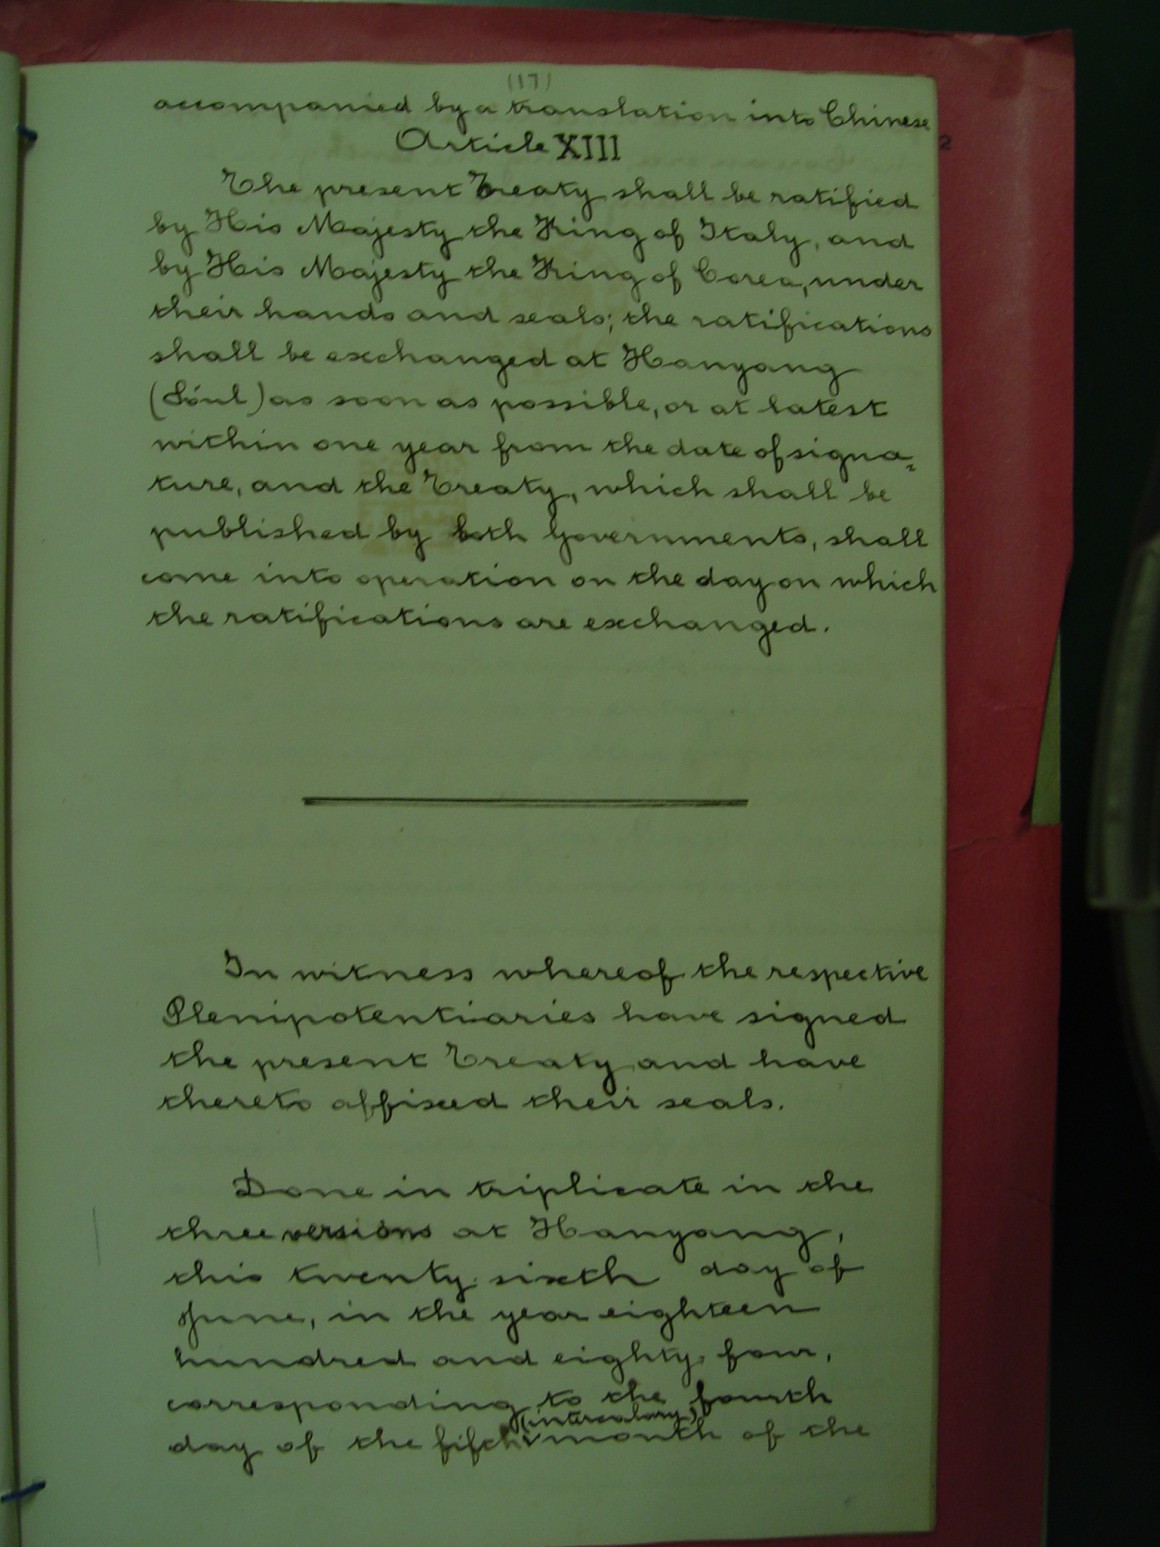 (17)
accompanied by a translation into Chinese
Article XIII
2
The present Treaty shall be ratified
by His Majesty the King of Italy, and
by His Majesty the King of Corea, under
their hands and seals; the ratifications
shall be exchanged at Hanyang
(Sóul) as soon as possible, or at latest
within one year from the date of signa=
ture, and the Treaty, which shall be
published by both Governments, shall
come into operation on the day on which
the ratifications are exchanged.
In witness whereof the respective
Plenipotentiaries have signed
the present Treaty and have
thereto affixed their seals.
Done in triplicate in the
three versions at Hanyang,
this twenty sixth day of
June, in the year eighteen
hundred and eighty four,
corresponding to the fourth
(intercalary)
day of the fifth month of the